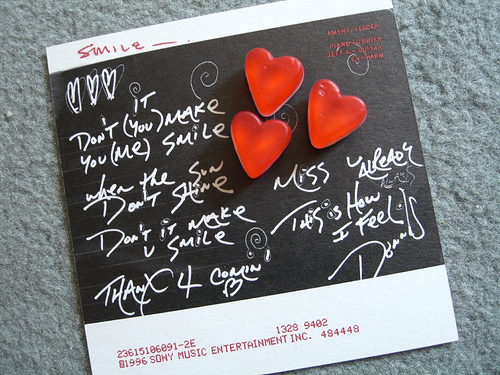 SMILE —
AMENT/VEDDER
PIANO-O'BRIEN
JEFF A-GUITAR
ED-HARM
IT
DON'T (YOU) MAKE
YOU (ME) SMILE
WHEN the SUN
DON'T SHINE
DON'T it MAKE
U SMILE
THANX 4 COMIN'!
MISS U ALREADY
ALWAYS
THIS is HOW
I FEEL
23615106091-2E
1328 9402
©1996 SONY MUSIC ENTERTAINMENT INC. 484448